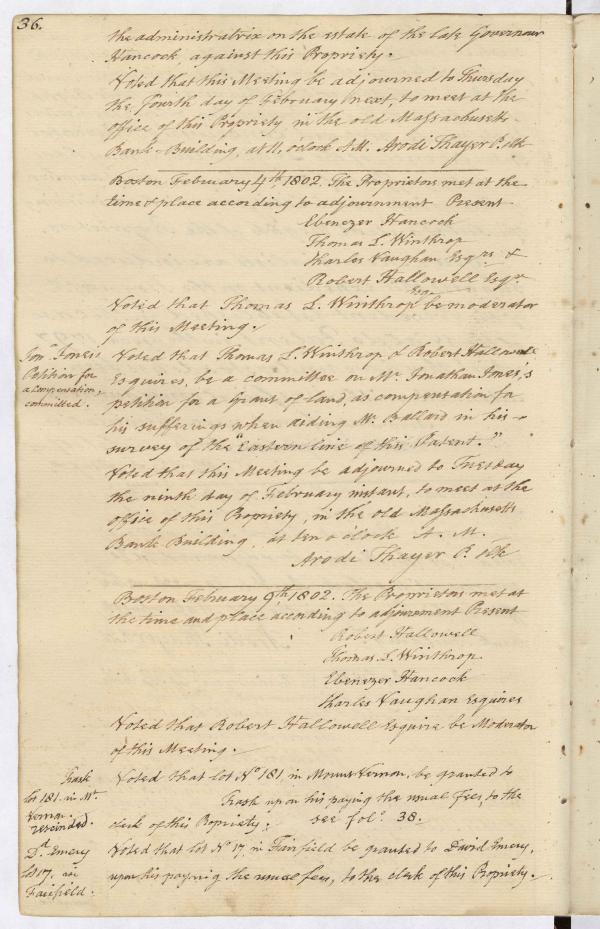 36.
the administratrix on the estate of the late Governour
Hancock, against this Propriety.
Voted that this Meeting be adjourned to Thursday
the fourth day of February next, to meet at the
office of this Propriety in the old Massachusetts
Bank-Building, at 11, o'clock A.M. Arodi Thayer P. Clk
Boston February 4th 1802. The Proprietors met at the
time & place according to adjournment Present
Ebenezer Hancock
Thomas L. Winthrop
Charles Vaughan Esqrs &
Robert Hallowell Esqr.
Voted that Thomas L. Winthrop Esqr be moderator
of this Meeting.
Jonn. Jones's
Petition for
a Compensation,
committed.
Voted that Thomas L. Winthrop & Robert Hallowell
Esquires, be a committee on Mr. Jonathan Jones,'s
petition for a Grant of land, as compensation for
his sufferings when aiding Mr. Ballard in his
survey of the "Eastern line of this Patent."
Voted that this Meeting be adjourned to Tuesday
the ninth day of February instant, to meet at the
office of this Propriety, in the old Massachusetts
Bank Building, at ten o'clock A. M.
Arodi Thayer P. Clk
Boston February 9th, 1802. The Proprietors met at
the time and place according to adjournment Present
Robert Hallowell
Thomas L. Winthrop
Ebenezer Hancock
Charles Vaughan Esquires
Voted that Robert Hallowell Esquire be Moderator
of this Meeting.
Trask
lot 181. in Mt.
Vernon
rescinded.
Voted that lot No 181, in Mount Vernon, be granted to
Trask upon his paying the usual fees, to the
clerk of this Propriety. see folo. 38.
Dd. Emery
lot 17, in
Fairfield.
Voted that lot No 17, in Fairfield be granted to David Emery,
upon his paying the usual fees, to the clerk of this Propriety.